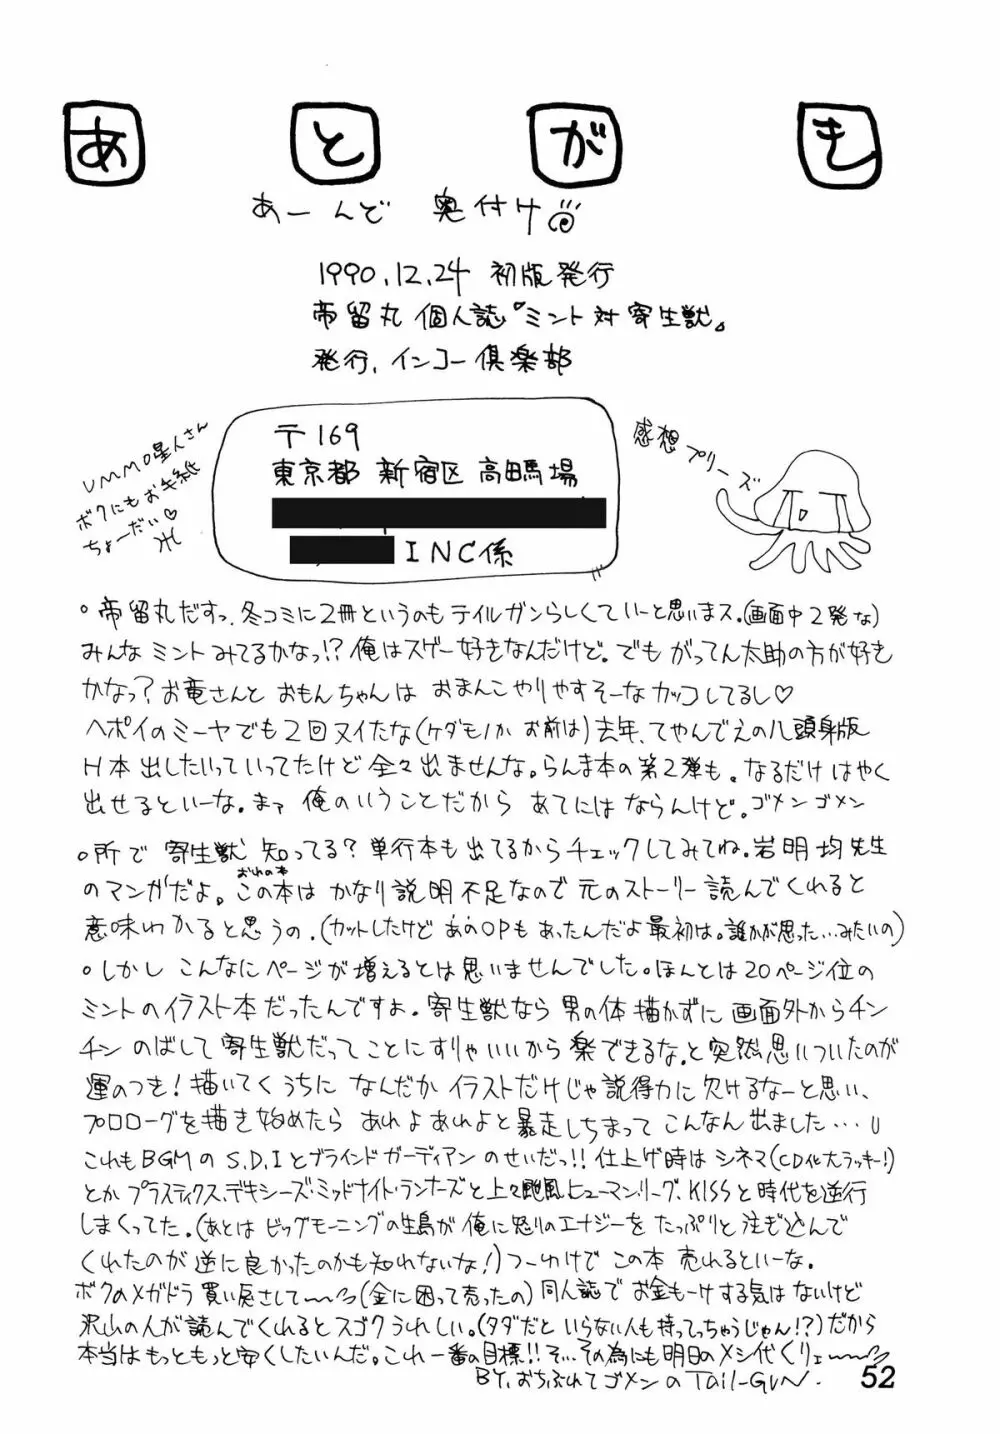 あとがき
あーんど 奥付け
1990.12.24 初版発行
帝留丸 個人誌『ミント対寄生獣』
発行、インコー倶楽部
UMMO星人さん
ボクにもお手紙
ちょーだい♡
〒169
東京都 新宿区 高田馬場
INC係
感想プリーズ
。帝留丸だすっ、冬コミに2冊というのもテイルガンらしくていーと思いまス。(画面中2発な)
みんなミントみてるかなっ!?俺はスゲー好きなんだけど。でもがってん太助の方が好き
かなっ?お竜さんとおもんちゃんはおまんこやりやすそーなカッコしてるし♡
ヘポイのミーヤでも2回ヌイたな(ケダモノかお前は)去年、てやんでえの八頭身版
H本出したいっていってたけど全々出ませんな。らんま本の第2弾も。なるだけはやく
出せるといーな。まァ俺のいうことだからあてにはならんけど。ゴメンゴメン
。所で寄生獣知ってる?単行本も出てるからチェックしてみてね。岩明均先生
のマンガだよ。この本はかなり説明不足なので元のストーリー読んでくれると
おれの本
意味わかると思うの。(カットしたけどあのOPもあったんだよ最初は。誰かが思った…みたいの)
。しかしこんなにページが増えるとは思いませんでした。ほんとは20ページ位の
ミントのイラスト本だったんですよ。寄生獣なら男の体描かずに画面外からチン
チンのばして寄生獣だってことにすりゃいいから楽できるな。と突然思いついたのが
運のつき!描いてくうちになんだかイラストだけじゃ説得力に欠けるなーと思い、
プロローグを描き始めたらあれよあれよと暴走しちまってこんなん出ました…
これもBGMのS.D.Iとブラインドガーディアンのせいだっ!!仕上げ時はシネマ(CD化大ラッキー!)
とかプラスティクス、デキシーズ・ミッドナイト・ランナーズと上々颱風、ヒューマン・リーグ、KISSと時代を逆行
しまくってた。(あとはビッグモーニングの生島が俺に怒りのエナジーをたっぷりと注ぎ込んで
くれたのが逆に良かったのかも知れないな!)つーわけでこの本売れるといーな。
ボクのメガドラ買い戻さして〜(金に困って売ったの)同人誌でお金もーけする気はないけど
沢山の人が読んでくれるとスゴクうれしい。(タダだといらない人も持ってっちゃうじゃん!?)だから
本当はもっともっと安くしたいんだ。これ一番の目標!!そ…その為にも明日のメシ代くりェ〜
BY.おちぶれてゴメンのTail-GuN.
52